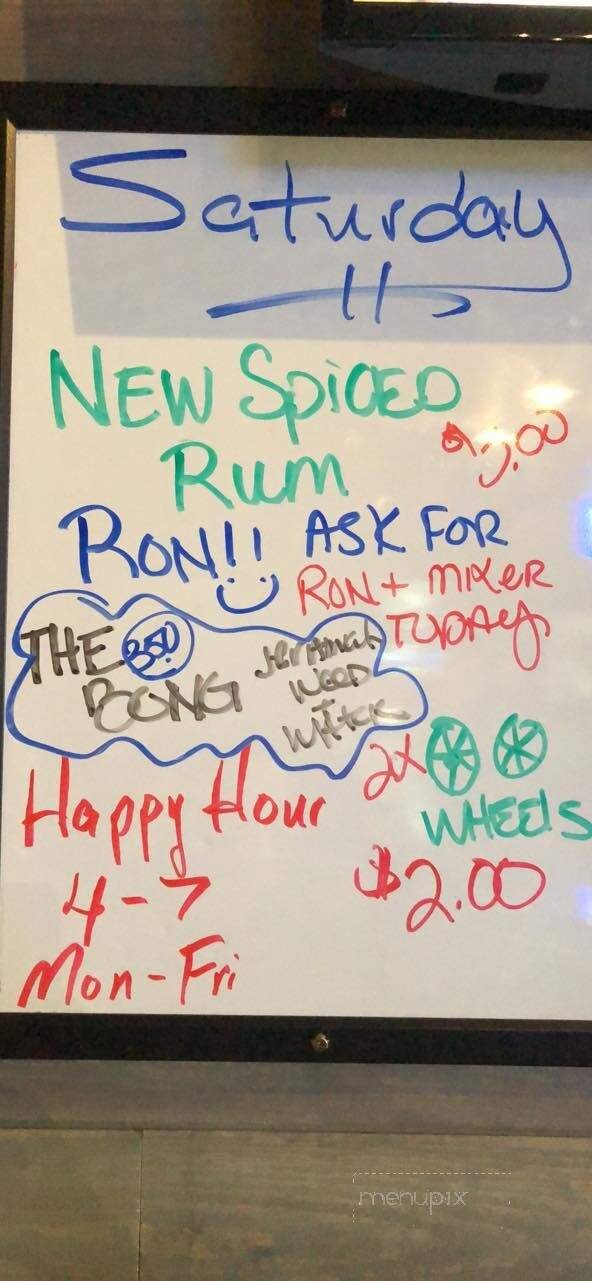 Saturday
NEW Spiced
Rum
RON!! ASK FOR
RON + mixer
TODAY
THE
BONG
Jeremiah
WEED
+
Happy Hour
2x
WHEELS
4-7
$2.00
Mon-Fri
menupix